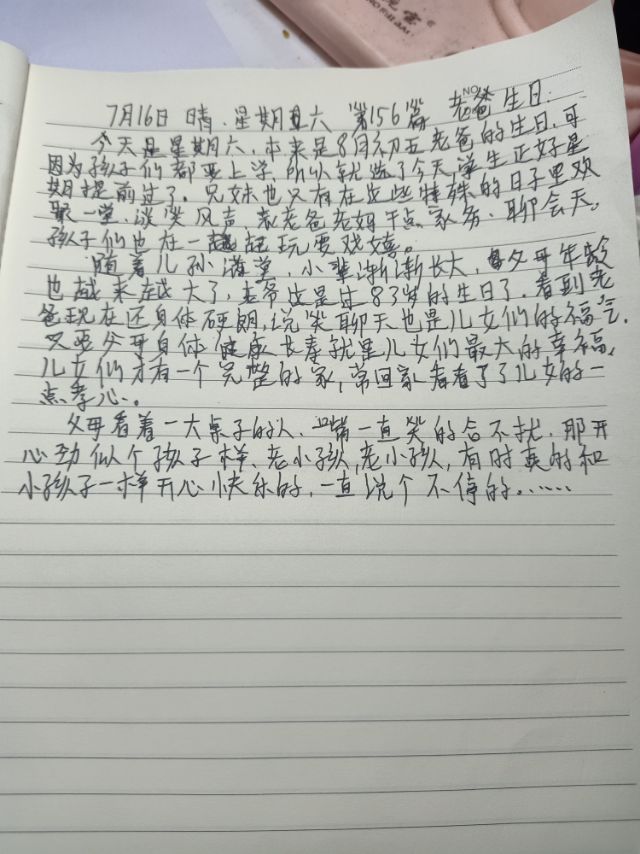 7月16日 晴 星期五六 第156篇 老爸生日.
NO
今天是星期六,本来是8月初五老爸的生日,可
因为孩子们都要上学,所以就选了今天,学生正好星
期提前过了。兄妹也只有在这些特殊的日子里欢
聚一堂,谈笑风声,老爸老妈干点家务,聊会天。
孩子们也在一起玩耍戏嬉。
随着儿孙满堂,小辈渐渐长大,父母年龄
也越来越大了,老爷这是过83岁的生日了,看到老
爸现在还身体硬朗,说笑聊天也是儿女们的福气.
只要父母身体健康长寿就是儿女们最大的幸福,
儿女们才有一个完整的家,常回家看看了了儿女的一
点孝心。
父母看着一大桌子的人、嘴一直笑的合不扰,那开
心劲似个孩子样、老小孩,老小孩,有时真的和
小孩子一样开心快乐的,一直说个不停的。……